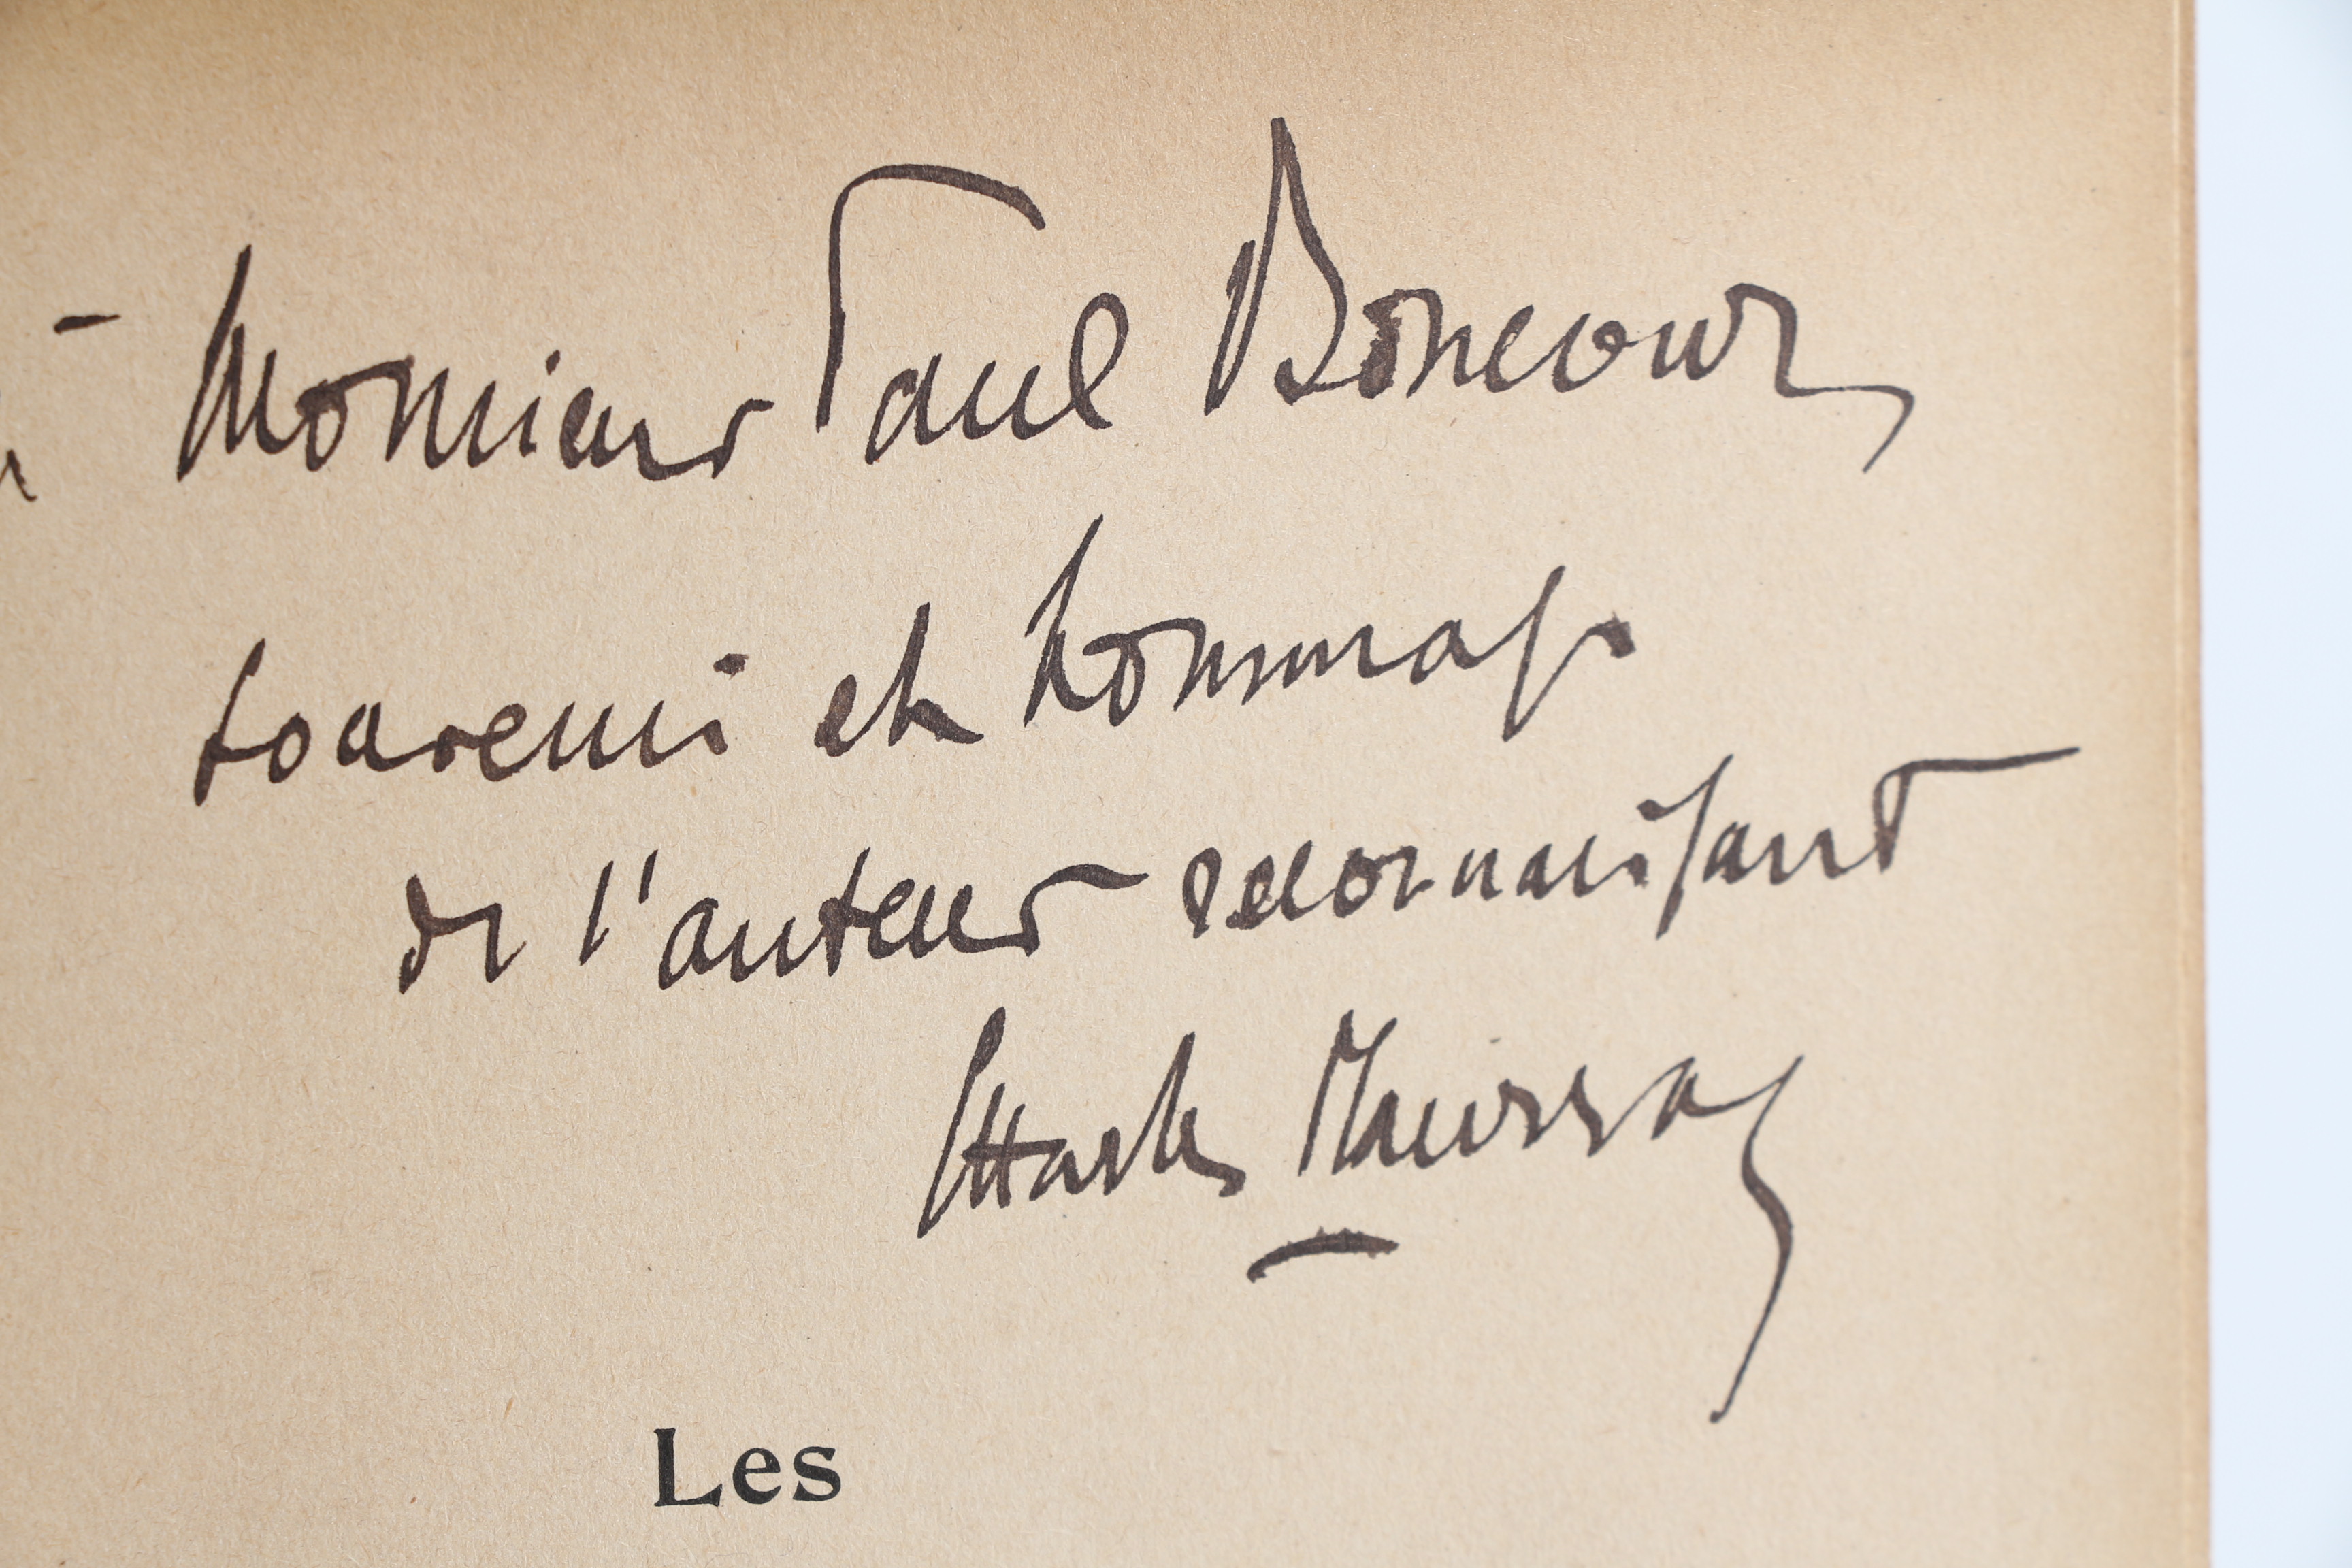 à Monsieur Paul Boncour
souvenir et hommage
de l'auteur reconnaissant
Charles Maurras
Les